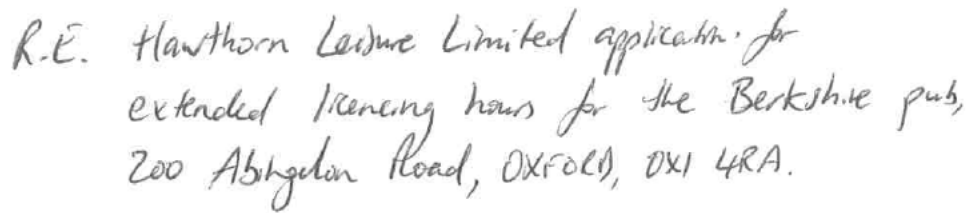 R.E. Hawthorn Leisure Limited application for
extended licencing hours for the Berkshire pub,
200 Abingdon Road, OXFORD, OX1 4RA.